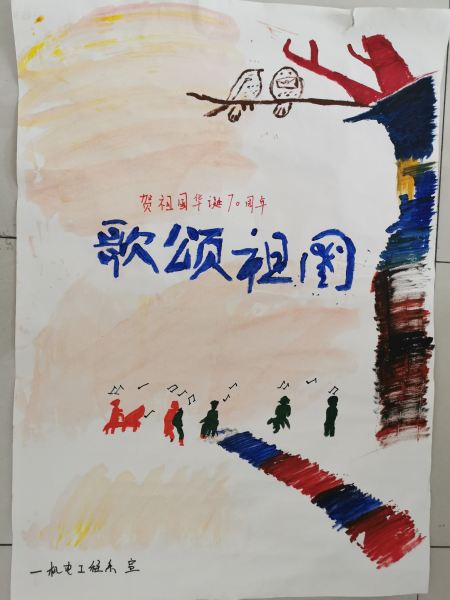 贺祖国华诞70周年
歌颂祖国
一机电工程系 宣